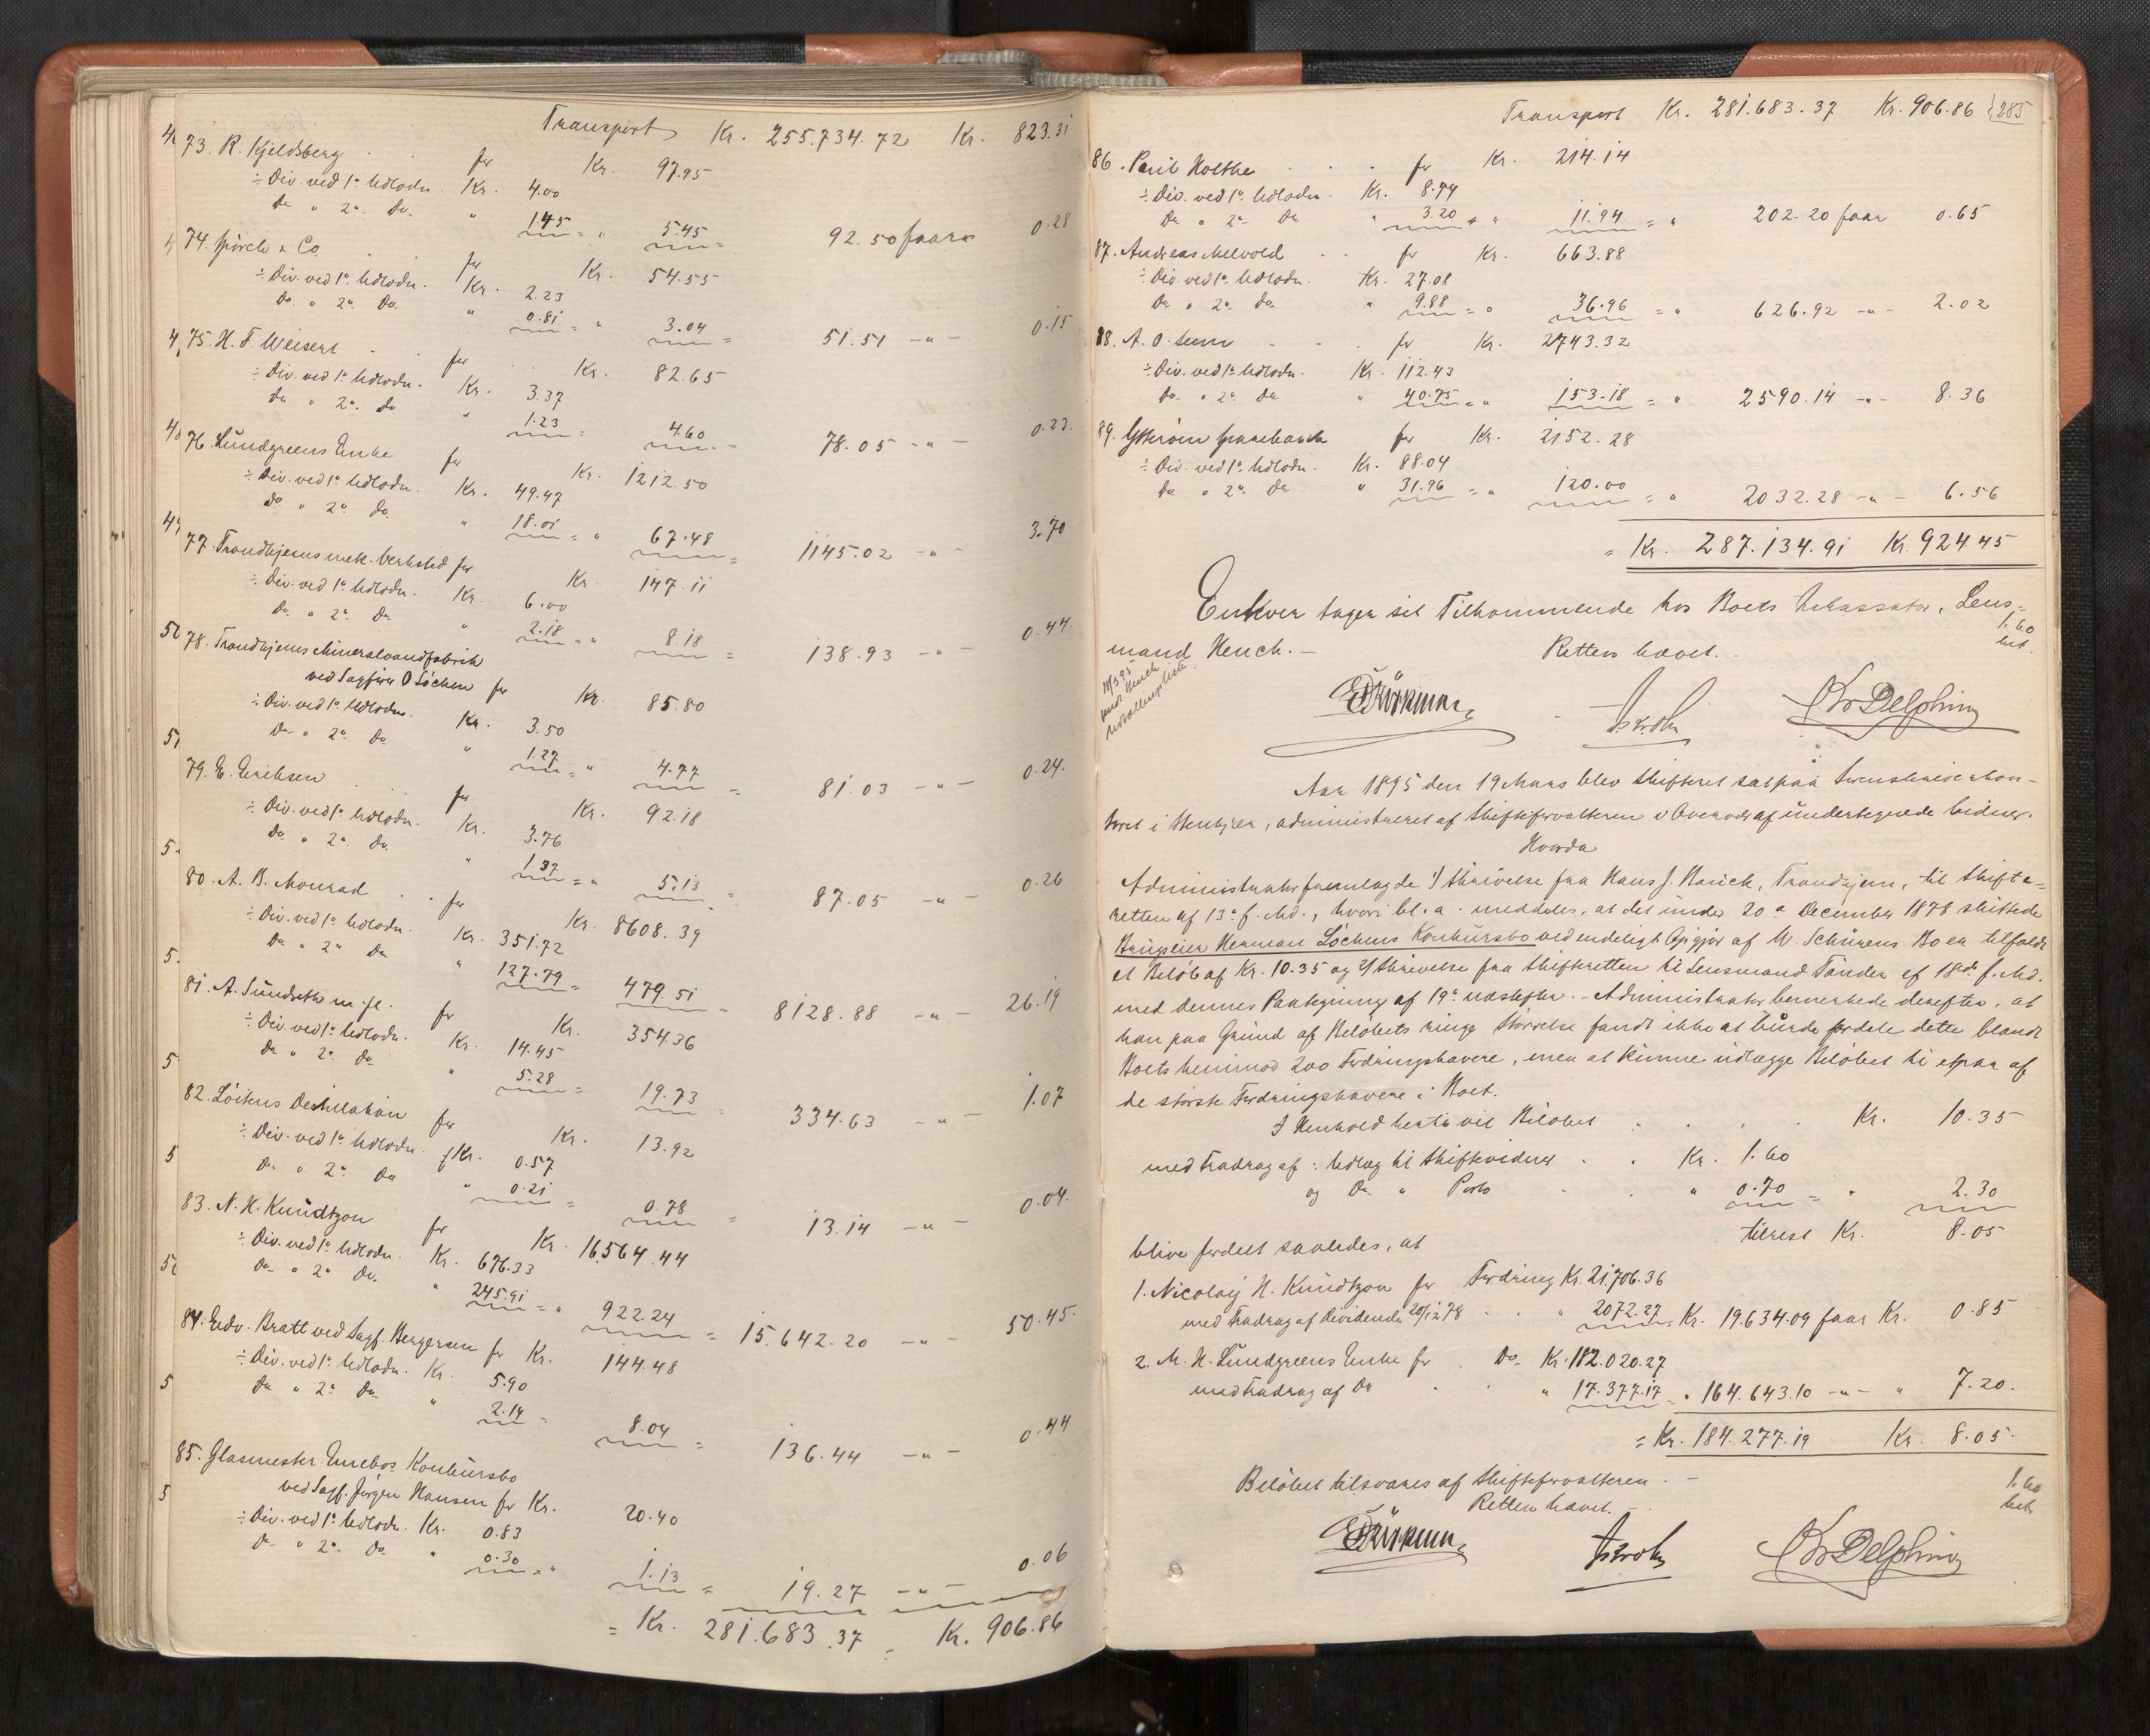 Transport Kr. 255.734.72 Kr. 823.31
73. R. Kjeldsberg . . for Kr. 97.95
÷ Div. ved 1ª Udlodn. Kr. 4.00
Do " 2ª Do. " 1.45 = " 5.45 = 92.50 faar 0.28
74. Hirsch & Co. . . for Kr. 54.55
÷ Div. ved 1ª Udlodn. Kr. 2.23
Do. " 2ª Do. " 0.81 = " 3.04 = 51.51 -"- 0.15
75. H. F. Weisert . . for Kr. 82.65
÷ Div. ved 1ª Udlodn. Kr. 3.37
Do " 2ª Do " 1.23 = 4.60 = 78.05 -"- 0.23.
76. Lundgreens Enke for Kr. 1212.50
÷ Div. ved 1ª Udlodn. Kr. 49.47
Do. " 2ª Do. " 18.01 = " 67.48 = 1145.02 -"- 3.70
77. Trondhjems mek. Verksted for Kr. 147.11
÷ Div. ved 1ª Udlodn. Kr. 6.00
Do. " 2ª Do " 2.18 = " 8.18 = 138.93 -"- 0.44.
78. Trondhjems Mineralvandfabrik
ved Sagfører O Löchen for Kr. 85.80
÷ Div. ved 1ª Udlodn. Kr. 3.50
Do " 2ª Do " 1.27 = " 4.77 = 81.03 -"- 0.24.
79. E. Eriksen . . for Kr. 92.18
÷ Div. ved 1ª Udlodn. Kr. 3.76
Do " 2ª Do. " 1.37 = " 5.13 = 87.05 -"- 0.26
80. A. B. Monrad . . for Kr. 8608.39
÷ Div. ved 1ª Udlodn. Kr. 351.72
Do " 2ª Do " 127.79 = 479.51 = 8128.88 -"- 26.19
81. A. Sundseth m. fl. for Kr. 354.36
÷ Div. ved 1ª Udlodn. Kr. 14.45
Do " 2ª Do " 5.28 = 19.73 = 334.63 -"- 1.07
82. Löitens Destillation for Kr. 13.92
÷ Div. ved 1ª Udlodn. Kr. 0.57
Do " 2ª Do " 0.21 = 0.78 = 13.14 -"- 0.04.
83. N. H. Knudtzon for Kr. 16.564.44
÷ Div. ved 1ª Udlodn. Kr. 676.33
Do " 2ª Do. " 245.91 = " 922.24 = 15.642.20 -"- 50.45.
84. Edv. Bratt ved Sagf. Bergersen for Kr. 144.48
÷ Div. ved 1ª Udlodn. Kr. 5.90
Do " 2ª Do " 2.14 = 8.04 = 136.44 -"- 0.44
85. Glasmester Enebos Konkursbo
ved Sagf. Jörgen Hansen for Kr. 20.40
÷ Div. ved 1ª Udlodn. Kr. 0.83
Do " 2ª Do " 0.30 = " 1.13 = 19.27 -"- 0.06
= Kr. 281.683.37 = Kr. 906.86
Transport Kr. 281.683.37 Kr. 906.86 285
86. Paul Holthe . . . for Kr. 214.14
÷ Div. ved 1ª Udlodn. Kr. 8.74
Do " 2ª Do " 3.20 = " 11.94 = " 202.20 faar 0.65
87. Andreas Melvold . . for Kr. 663.88
÷ Div. ved 1ª Udlodn. Kr. 27.08
Do " 2ª Do " 9.88 = " 36.96 = " 626.92 -"- 2.02
88. A. O. . . . for Kr. 2743.32
÷ Div. ved 1ª Udlodn. Kr. 112.43
Do. " 2ª Do " 40.75 = " 153.18 = " 2590.14 -"- 8.36
89. Ytterøen Sparebank for Kr. 2152.28
÷ Div. ved 1ª Udlodn. Kr. 88.04
Do " 2ª Do " 31.96 = " 120.00 = " 2032.28 -"- 6.56
= Kr. 287.134.91 Kr. 924.45
Enhver tager sit Tilkommende hos Boets Inkassator, Lens-
mand Hench. - Retten hævet. -
1.60
bet.
Kr Delphin
Aar 1895 den 19 Mars blev Skifteret sat paa Sorenskriverkon-
toret i Stenkjær, administreret af Skifteforvalteren i Overvær af undertegnede Vidner.
Hvorda
Administrator fremlagde 1/ Skrivelse fra Hans J. Bauck, Trondhjem, til Skifte-
retten af 13ª f. Md., hvori bl. a. meddeles, at det under 20ª December 1878 sluttede
Brugseier Herman Löchens Konkursbo ved endeligt Opgjør af W. Schurens Bo er tilfaldt
et Beløb af Kr. 10.35 og 2/ Skrivelse fra Skifteretten til Lensmand Tander af 18de f. Md.
med dennes Paategning af 19ª næstefter. - Administrator bemerkede derefter, at
han paa Grund af Beløbets ringe Størrelse fandt ikke at burde fordele dette blandt
Boets henimod 200 Fordringshavere, men at kunne udlægge Beløbet til et par af
de største Fordringshavere i Boet.
I Henhold hertil vil Beløbet . . . . Kr. 10.35
med Fradrag af: Udlæg til Skiftevidner . . Kr. 1.60
og Do " Porto . . " 0.70 = " 2.30
tilrest Kr. 8.05
blive fordelt saaledes, at
1. Nicolay H. Knudtzon for Fordring Kr. 21.706.36
med Fradrag af Dividende 20/12 78 . . " 2072.27 = Kr. 19.634.09 faar Kr. 0.85
2. M. H. Lundgreens Enke for . Do. Kr. 182.020.27
med Fradrag af Do . . " 17.377.17 = " 164.643.10 -"- " 7.20.
= Kr. 184.277.19 Kr. 8.05.
Beløbet tilsvares af Skifteforvalteren. -
Retten hævet. -
1.60
bet.
Kr Delphin